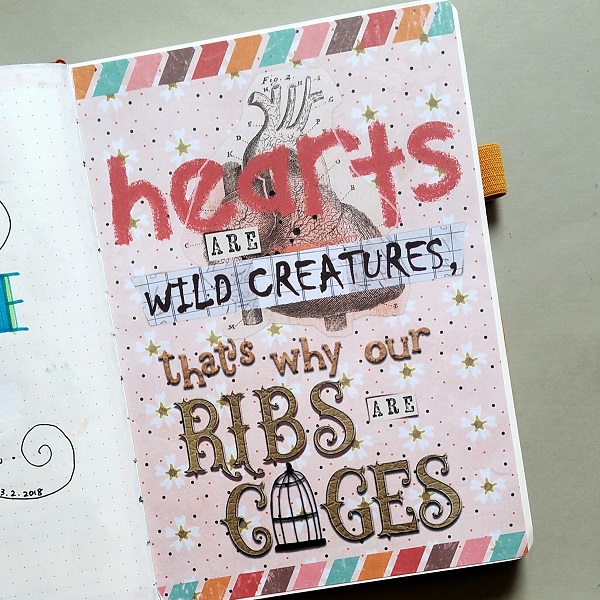 Fig. 2.
hearts
ARE
WILD CREATURES,
that's why our
RIBS ARE
CAGES
3.2.2018